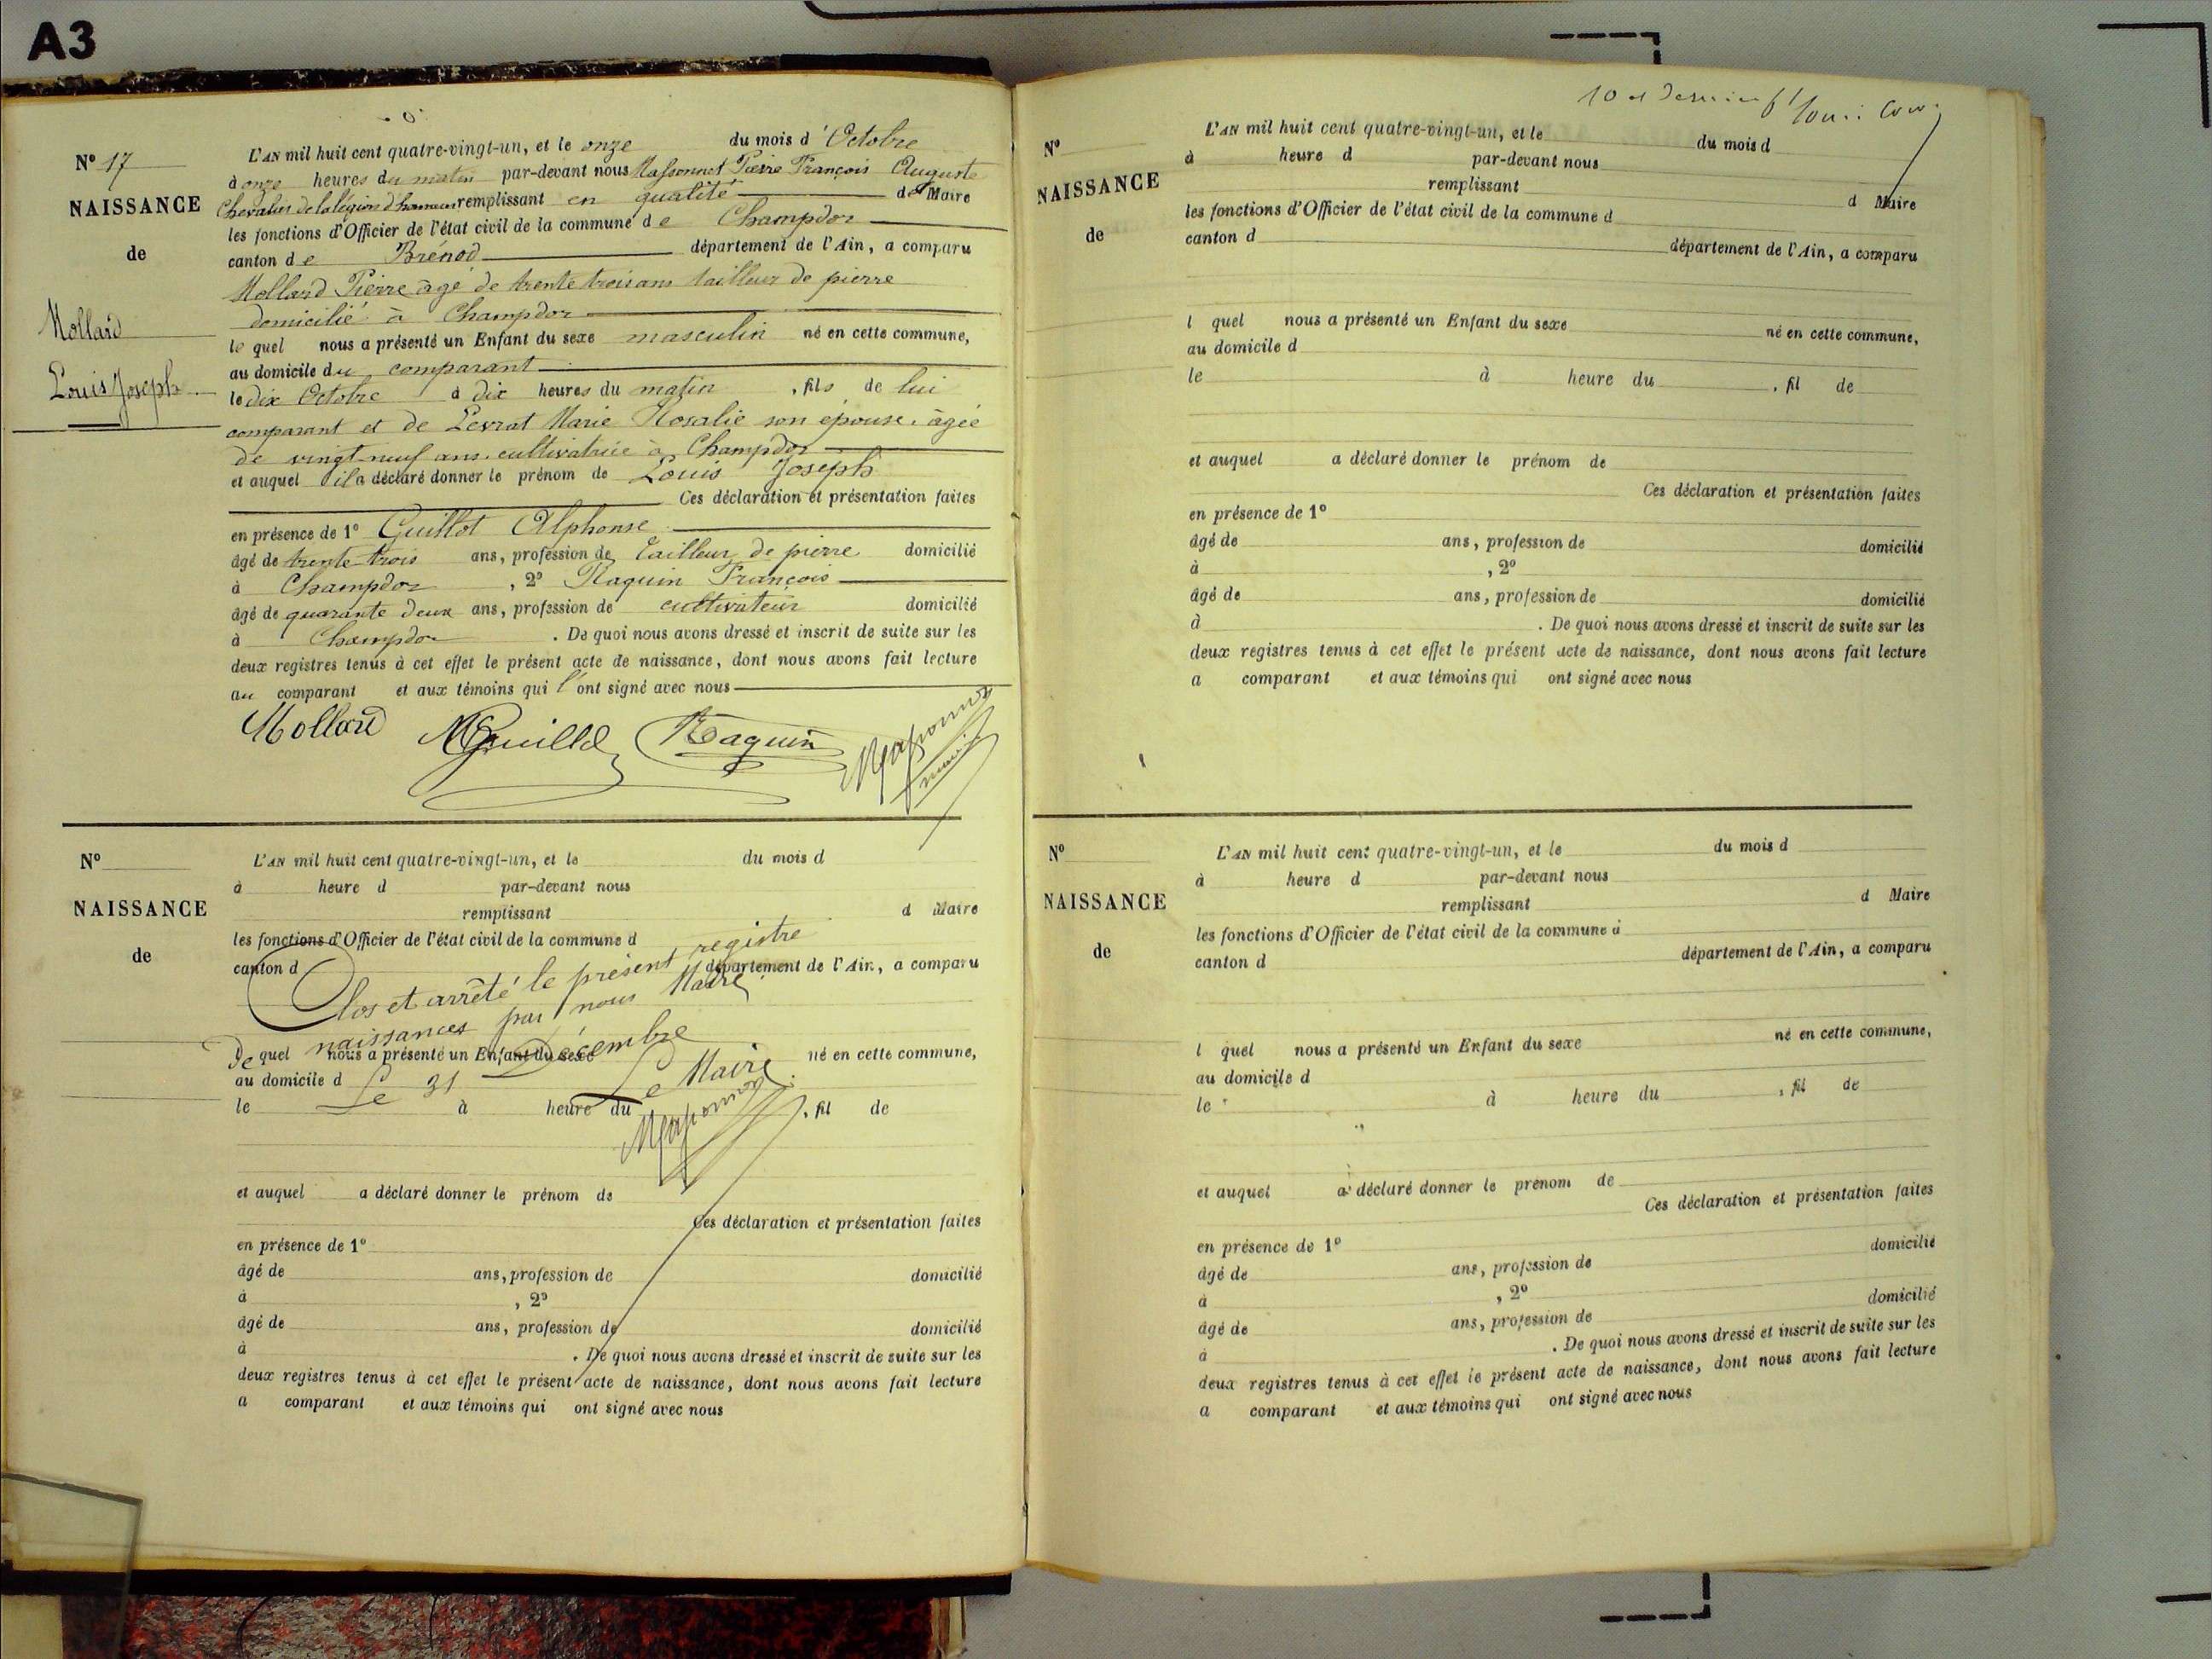 A3
Nº 17
NAISSANCE
de
Mollard
Louis Joseph
L'AN mil huit cent quatre-vingt-un, et le onze du mois d'Octobre
à onze heures du matin par-devant nous Massonnet Pierre François Auguste
Chevalier de la légion d'honneur remplissant en qualité de Maire
les fonctions d'Officier de l'état civil de la commune de Champdor
canton de Brénod département de l'Ain, a comparu
Mollard Pierre âgé de trente trois ans tailleur de pierre
domicilié à Champdor
le quel nous a présenté un Enfant du sexe masculin né en cette commune,
au domicile du comparant
le dix Octobre à dix heures du matin, fils de lui
comparant et de Levrat Marie Rosalie son épouse, âgée
de vingt neuf ans, cultivatrice à Champdor
et auquel il a déclaré donner le prénom de Louis Joseph
Ces déclaration et présentation faites
en présence de 1º Guillot Alphonse
âgé de trente trois ans, profession de tailleur de pierre domicilié
à Champdor, 2º Raquin François
âgé de quarante deux ans, profession de cultivateur domicilié
à Champdor. De quoi nous avons dressé et inscrit de suite sur les
deux registres tenus à cet effet le présent acte de naissance, dont nous avons fait lecture
au comparant et aux témoins qui l'ont signé avec nous
Mollard Raquin
Nº
NAISSANCE
de
L'AN mil huit cent quatre-vingt-un, et le du mois d
à heure d par-devant nous
remplissant d Maire
les fonctions d'Officier de l'état civil de la commune d
canton d département de l'Ain, a comparu
Clos et arrêté le présent registre
De naissances par nous Maire
Le 31 Décembre
Le Maire
l quel nous a présenté un Enfant du sexe né en cette commune,
au domicile d
le à heure du, fil de
et auquel a déclaré donner le prénom de
Ces déclaration et présentation faites
en présence de 1º
âgé de ans, profession de domicilié
à , 2º
âgé de ans, profession de domicilié
à . De quoi nous avons dressé et inscrit de suite sur les
deux registres tenus à cet effet le présent acte de naissance, dont nous avons fait lecture
a comparant et aux témoins qui ont signé avec nous
10
Nº
NAISSANCE
de
L'AN mil huit cent quatre-vingt-un, et le du mois d
à heure d par-devant nous
remplissant d Maire
les fonctions d'Officier de l'état civil de la commune d
canton d département de l'Ain, a comparu
l quel nous a présenté un Enfant du sexe né en cette commune,
au domicile d
le à heure du , fil de
et auquel a déclaré donner le prénom de
Ces déclaration et présentation faites
en présence de 1º
âgé de ans, profession de domicilié
à , 2º
âgé de ans, profession de domicilié
à . De quoi nous avons dressé et inscrit de suite sur les
deux registres tenus à cet effet le présent acte de naissance, dont nous avons fait lecture
a comparant et aux témoins qui ont signé avec nous
Nº
NAISSANCE
de
L'AN mil huit cent quatre-vingt-un, et le du mois d
à heure d par-devant nous
remplissant d Maire
les fonctions d'Officier de l'état civil de la commune d
canton d département de l'Ain, a comparu
l quel nous a présenté un Enfant du sexe né en cette commune,
au domicile d
le à heure du , fil de
et auquel a déclaré donner le prénom de
Ces déclaration et présentation faites
en présence de 1º
âgé de ans, profession de domicilié
à , 2º
âgé de ans, profession de domicilié
à . De quoi nous avons dressé et inscrit de suite sur les
deux registres tenus à cet effet le présent acte de naissance, dont nous avons fait lecture
a comparant et aux témoins qui ont signé avec nous